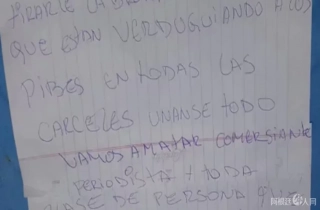 TIRARLE LA
QUE ESTAN VERDUGUIANDO A LOS
PIBES EN TODAS LAS
CARCELES UNANSE TODO
VAMOS A MATAR COMERSIANTE
PERIODISTA Y TODA
CLASE DE PERSONA QUE